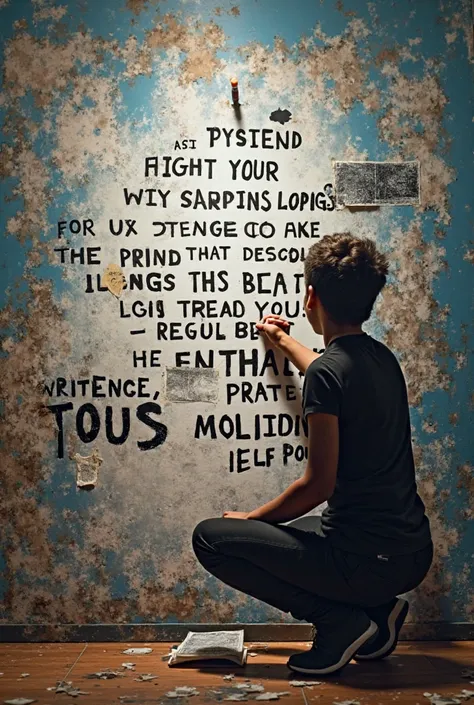 ASI PYSIEND
AIGHT YOUR
WIY SARPINS LOPIGS
FOR UX JTENGE CO AKE
THE PRIND THAT DESCOL
ILONGS THS BEAT
LGIS TREAD YOU.
— REGUL BE
HE ENTHAL
WRITENCE, PRATE
TOUS MOLIIDIN
IELF POU